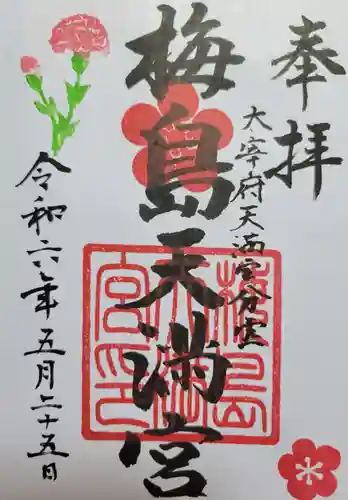 奉拝
大宰府天満宮分霊
梅島天満宮
令和六年五月二十五日
梅島
天満
宮印